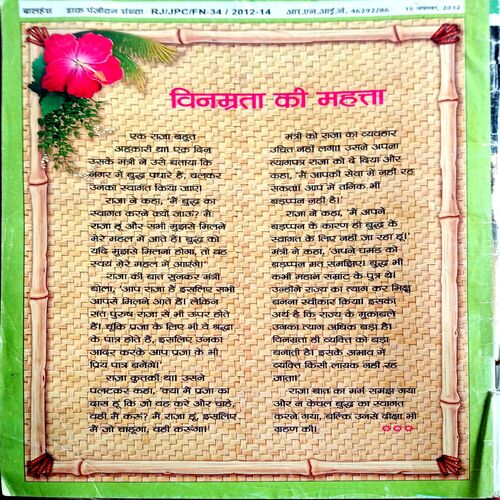 बालहंस डाक पंजीयन संख्या RJ/JPC/FN-34 / 2012-14 आर.एन.आई.नं. 46292/86 15 अगस्त, 2012
विनम्रता की महत्ता
एक राजा बहुत
अहंकारी था। एक दिन
उसके मंत्री ने उसे बताया कि
नगर में बुद्ध पधारे हैं, चलकर
उनका स्वागत किया जाए।
राजा ने कहा, 'मैं बुद्ध का
स्वागत करने क्यों जाऊं? मैं
राजा हूं और सभी मुझसे मिलने
मेरे महल में आते हैं। बुद्ध को
यदि मुझसे मिलना होगा, तो वह
स्वयं मेरे महल में आएंगे।'
राजा की बात सुनकर मंत्री
बोला, 'आप राजा हैं इसलिए सभी
आपसे मिलने आते हैं। लेकिन
संत पुरुष राजा से भी ऊपर होते
हैं। चूंकि प्रजा के लिए भी वे श्रद्धा
के पात्र होते हैं, इसलिए उनका
आदर करके आप प्रजा के भी
प्रिय पात्र बनेंगे।'
राजा कुतर्की था। उसने
पलटकर कहा, 'क्या मैं प्रजा का
दास हूं कि जो वह करे और चाहे,
वही मैं करूं? मैं राजा हूं, इसलिए
मैं जो चाहूंगा, वही करूंगा।'
मंत्री को राजा का व्यवहार
उचित नहीं लगा। उसने अपना
त्यागपत्र राजा को दे दिया और
कहा, 'मैं आपकी सेवा में नहीं रह
सकता। आप में तनिक भी
बड़प्पन नहीं है।'
राजा ने कहा, 'मैं अपने
बड़प्पन के कारण ही बुद्ध के
स्वागत के लिए नहीं जा रहा हूं।'
मंत्री ने कहा, 'अपने घमंड को
बड़प्पन मत समझिए। बुद्ध भी
कभी महान सम्राट के पुत्र थे।
उन्होंने राज्य का त्याग कर भिक्षु
बनना स्वीकार किया। इसका
अर्थ है कि राज्य के मुकाबले
उनका त्याग अधिक बड़ा है।
विनम्रता ही व्यक्ति को बड़ा
बनाती है। इसके अभाव में
व्यक्ति किसी लायक नहीं रह
जाता।'
राजा बात का मर्म समझ गया
और न केवल बुद्ध का स्वागत
करने गया, बल्कि उनसे दीक्षा भी
ग्रहण की।